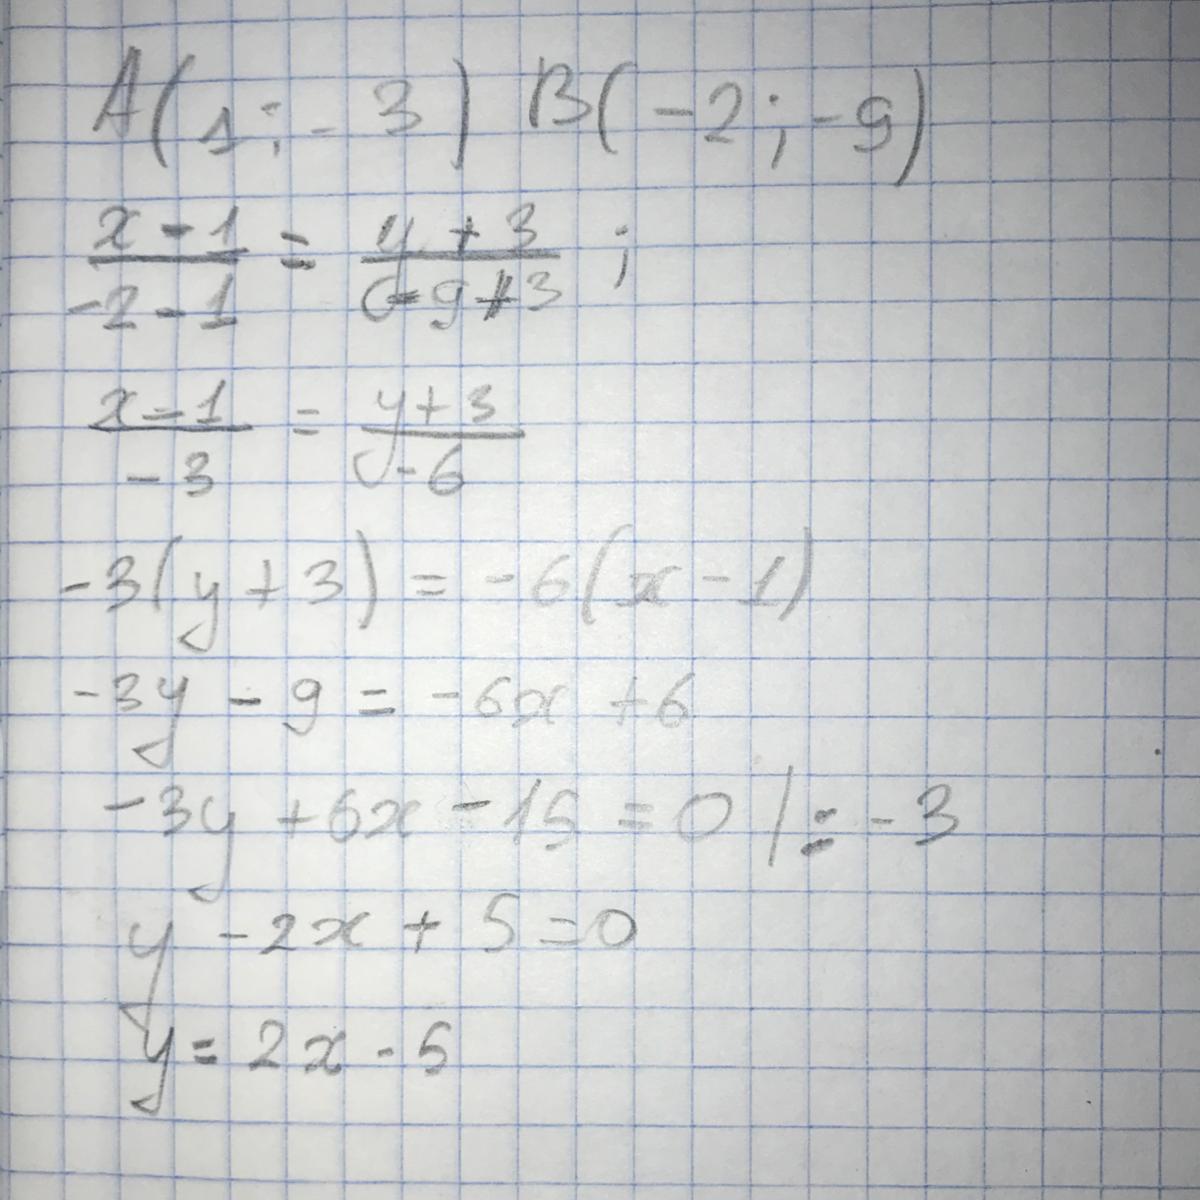 A(1; -3) B(-2; -9)
x - 1 / -2 - 1 = y + 3 / -9 + 3 ;
x - 1 / -3 = y + 3 / -6
-3(y + 3) = -6(x - 1)
-3y - 9 = -6x + 6
-3y + 6x - 15 = 0 | : -3
y - 2x + 5 = 0
y = 2x - 5